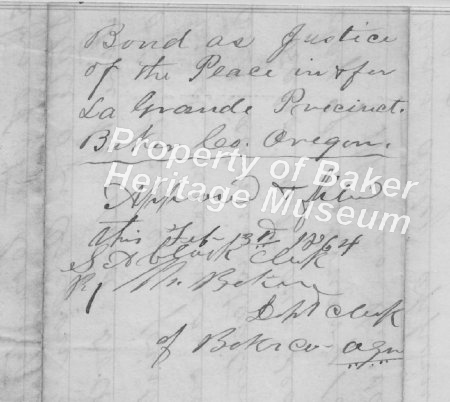 Bond as Justice
of the Peace in & for
La Grande Precinct.
Baker Co. Oregon.
Property of Baker
Heritage Museum
Approved & filed
this Feb 13th 1864
S A Clark Clerk
By Wm
Dept Clerk
of Baker co- ogn